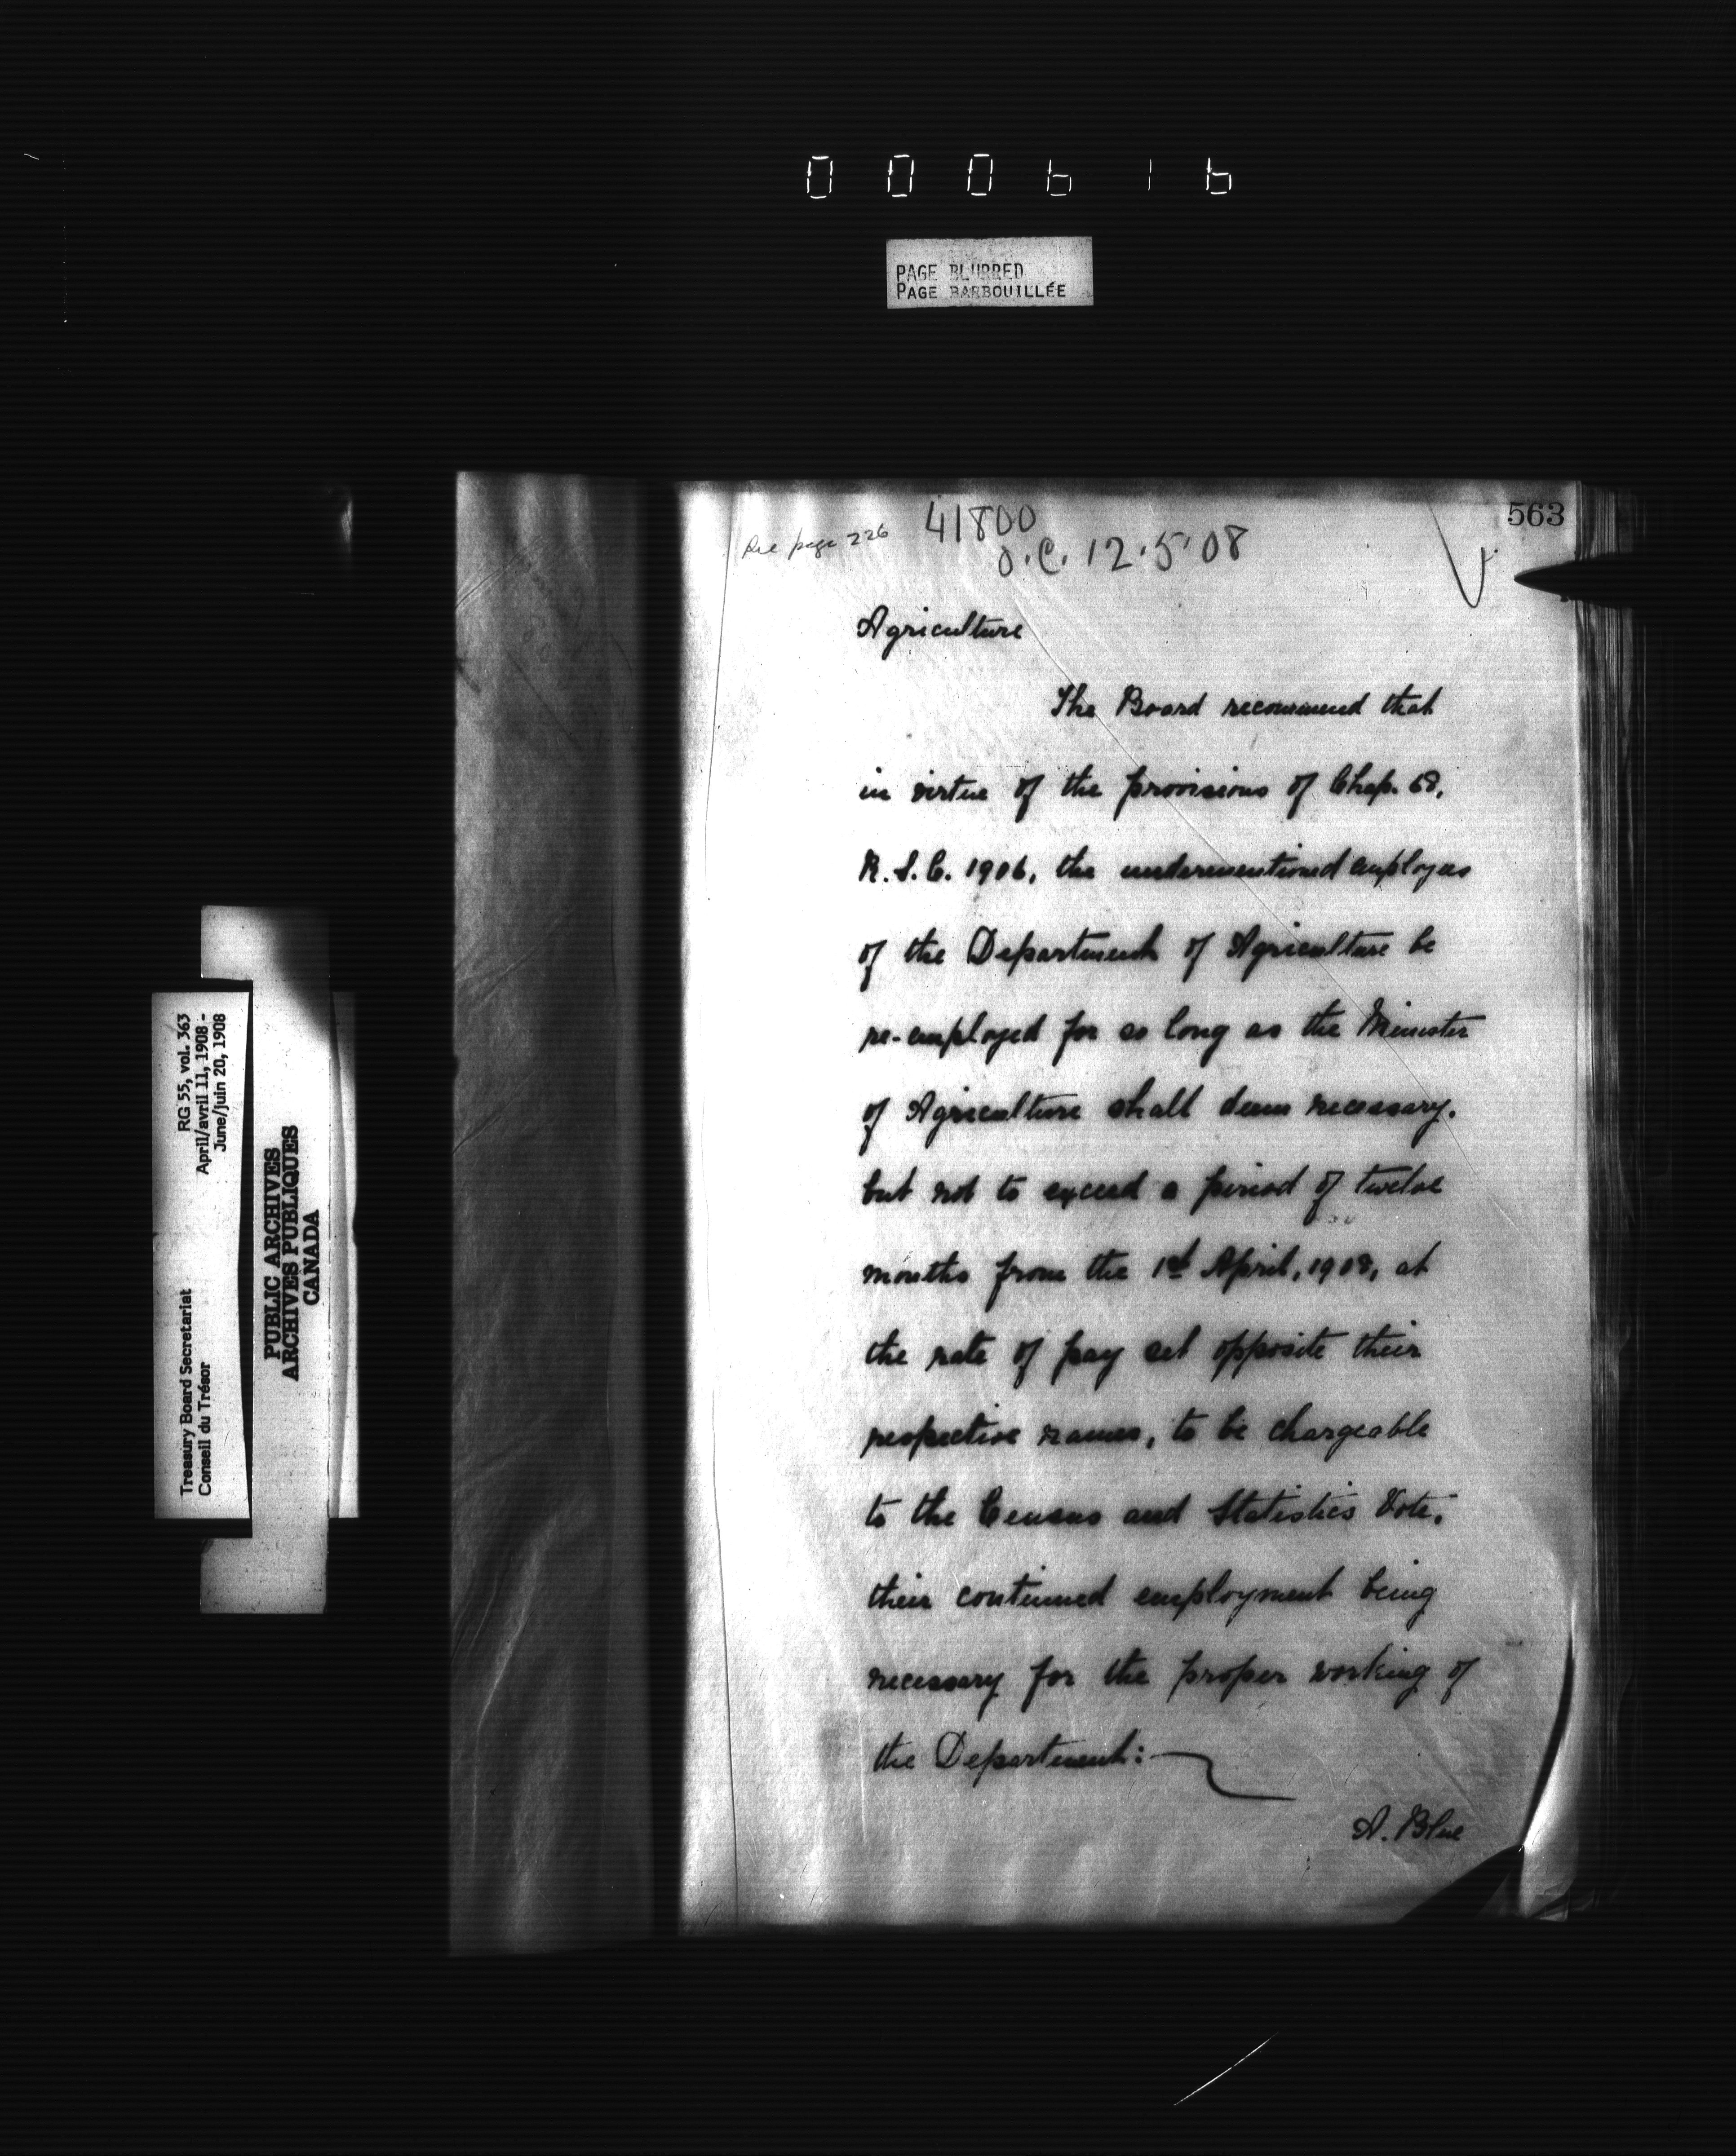 000616
PAGE BLURRED
PAGE BARBOUILLÉE
563
See page 226
41800
O.C. 12.5.08
Agriculture
The Board recommend that
in virtue of the provisions of Chap. 68,
R.S.C. 1906, the undermentioned employees
of the Department of Agriculture be
re-employed for so long as the Minister
of Agriculture shall deem necessary,
but not to exceed a period of twelve
months from the 1st April, 1908, at
the rate of pay set opposite their
respective names, to be chargeable
to the Census and Statistics Vote,
their continued employment being
necessary for the proper working of
the Department:
A. Blue
RG 55, vol. 363
April/avril 11, 1908 -
June/juin 20, 1908
Treasury Board Secretariat
Conseil du Trésor
PUBLIC ARCHIVES
ARCHIVES PUBLIQUES
CANADA